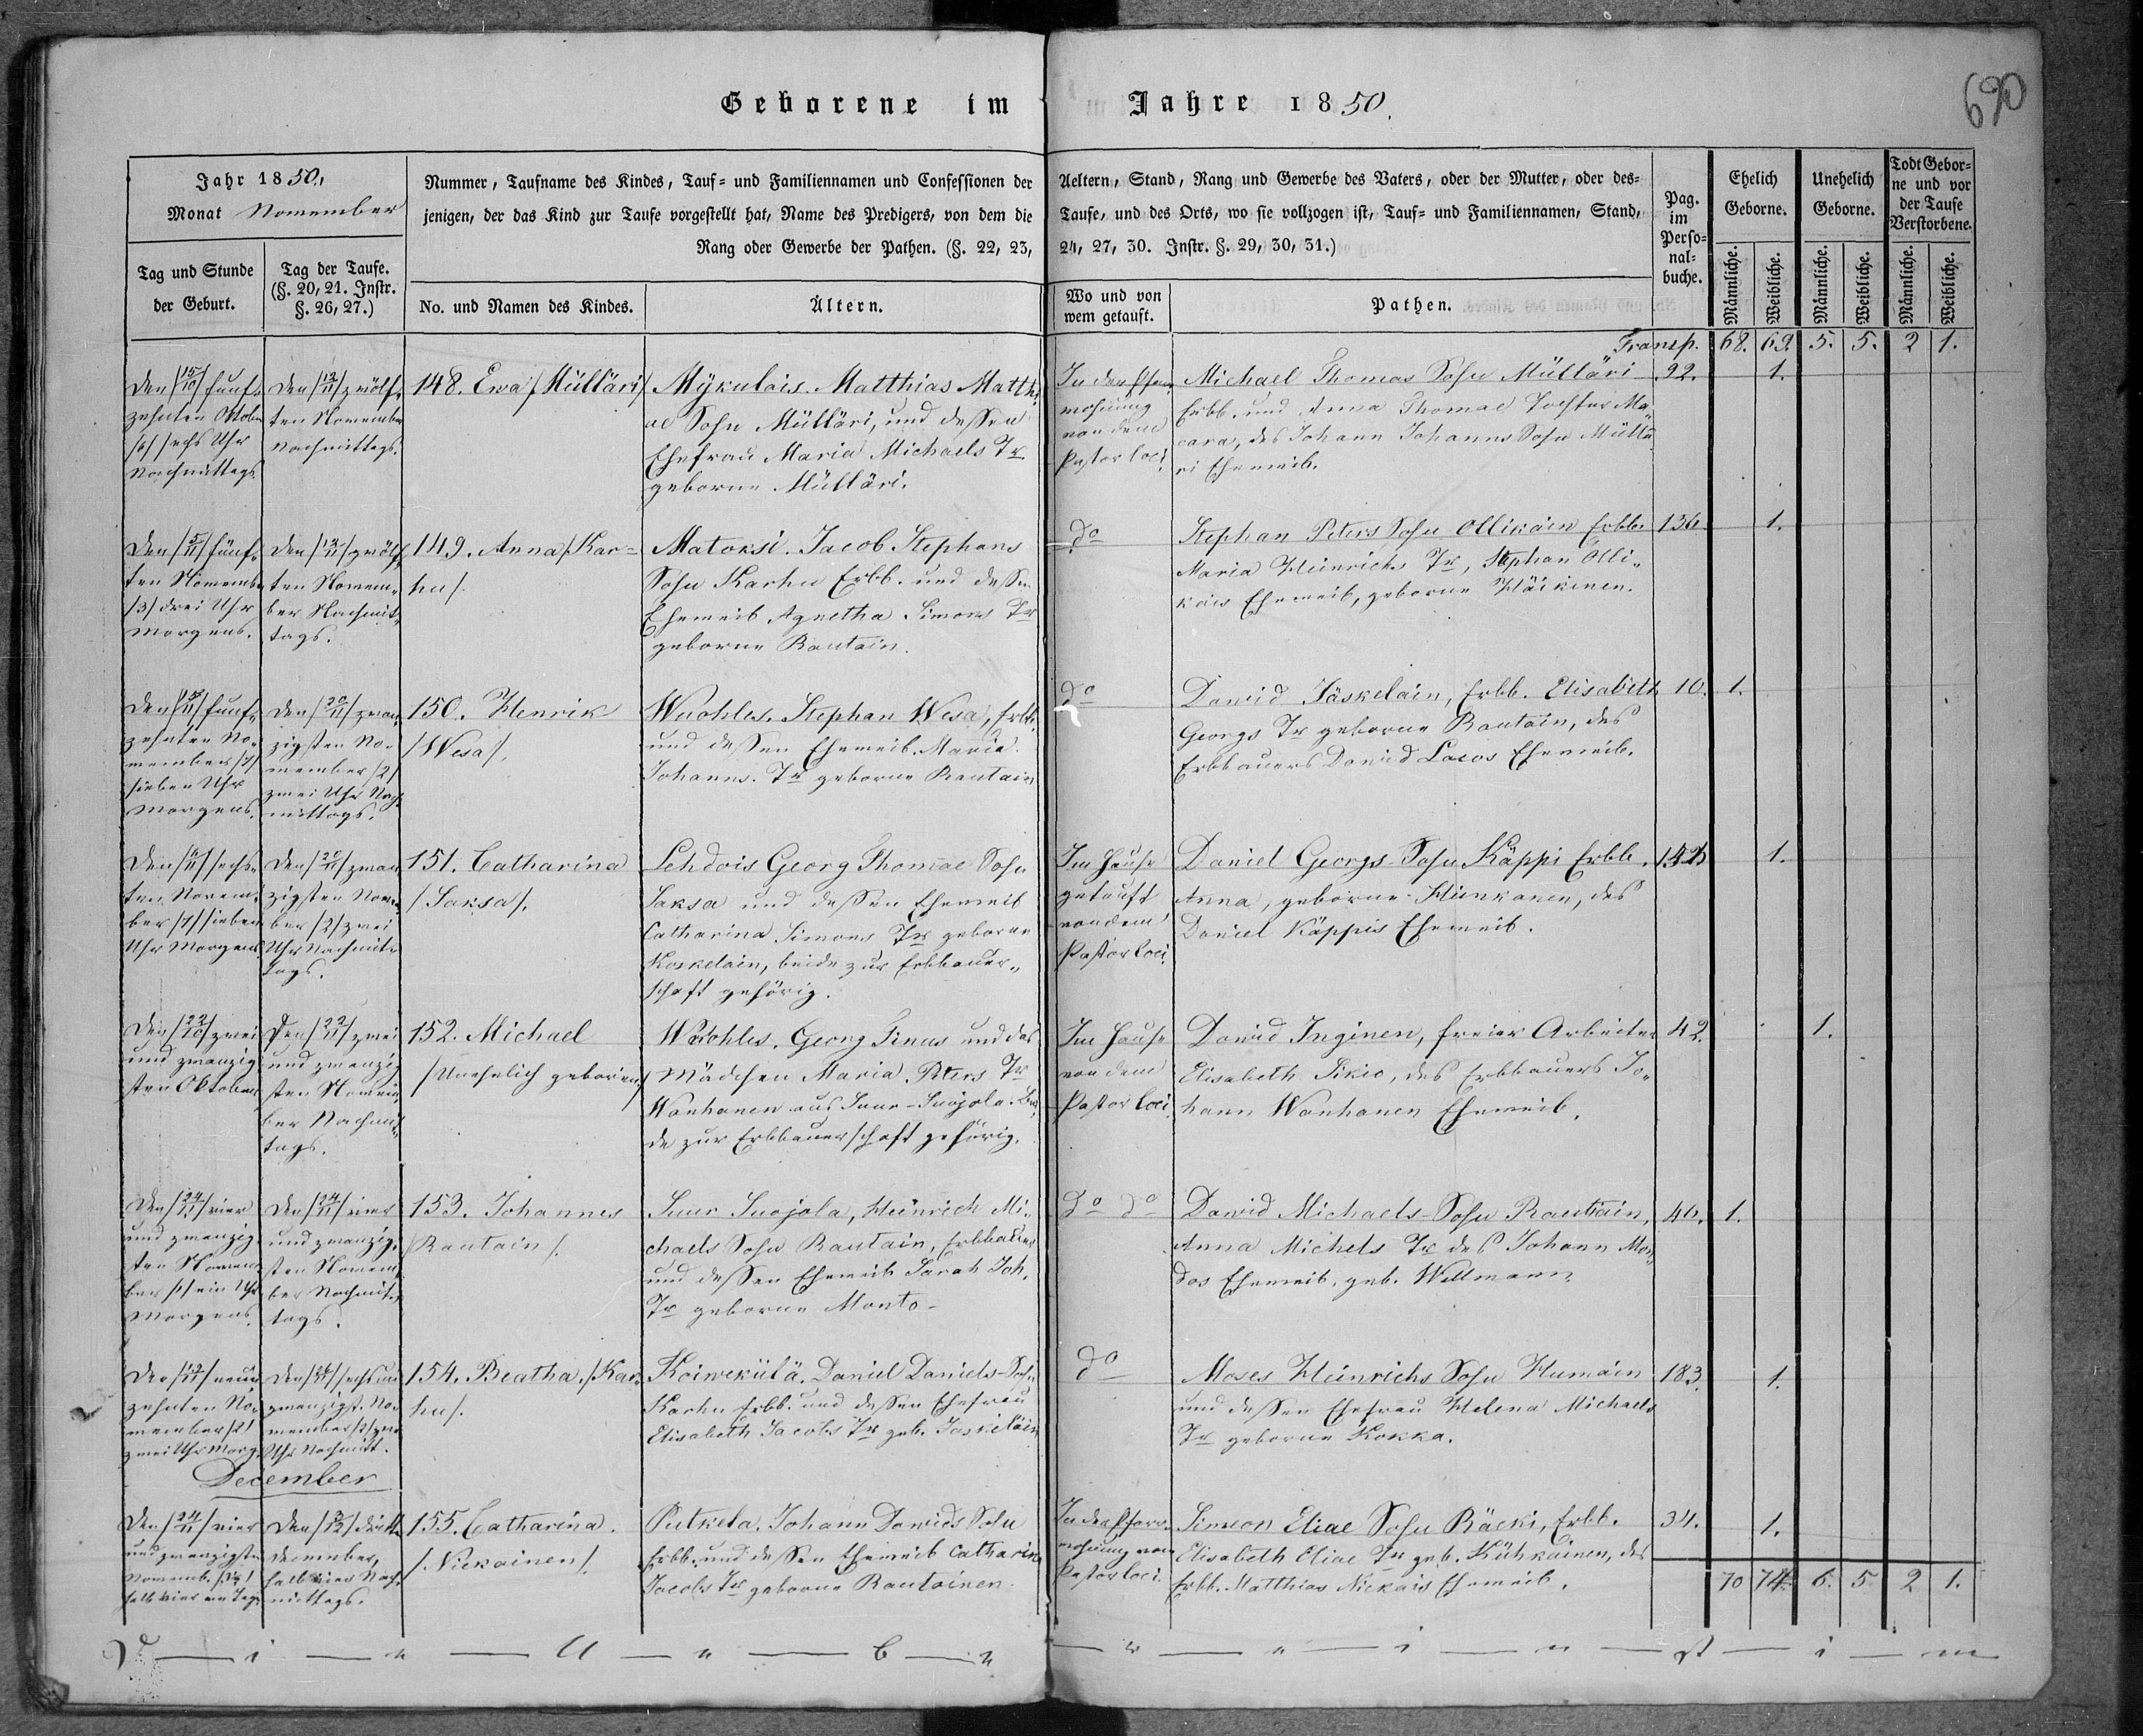 Geborene im Jahre 1850.
690
Jahr 1850.
Monat November
Nummer, Taufname des Kindes, Tauf- und Familiennamen und Confessionen der Aeltern, Stand, Rang und Gewerbe des Vaters, oder der Mutter, oder des-
jenigen, der das Kind zur Taufe vorgestellt hat, Name des Predigers, von dem die Taufe, und des Orts, wo sie vollzogen ist, Tauf- und Familiennamen, Stand,
Rang oder Gewerbe der Pathen. (§. 22, 23, 24, 27, 30. Instr. §. 29, 30, 31.)
Pag.
im
Perso-
nal-
buche.
Ehelich
Geborne.
Unehelich
Geborne.
Todt Gebor-
ne und vor
der Taufe
Verstorbene.
Männliche.
Weibliche.
Männliche.
Weibliche.
Männliche.
Weibliche.
Tag und Stunde
der Geburt.
Tag der Taufe.
(§. 20, 21. Instr.
§. 26, 27.)
No. und Namen des Kindes.
Ältern.
Wo und von
wem getauft.
Pathen.
Transp. 68. 69. 5. 5. 2 1.
Den /15/10/ funf-
zehnten Octobr
/6/ sechs Uhr
Nachmittags.
Den /12/11/ zwölf-
ten November
Nachmittags.
148. Ewa /Mülläri/
Mykulais. Matthias Matthi
ae Sohn Mülläri, und dessen
Ehefrau Maria Michaels Tr
geborne Mülläri.
In der Pfarr
wohnung
von dem
Pastor loci.
Michael Thomas Sohn Mülläri
Erbb. und Anna Thomae Tochter Ma-
cara, des Johann Johanns Sohn Müllä
ri Eheweib.
92. 1.
Den /5/11/ fünf-
ten November
/3/ drei Uhr
Morgens.
Den /12/11/ zwölf-
ten Novem-
ber Nachmit-
tags.
149. Anna /Kar-
hu/.
Matoksi. Jacob Stephans
Sohn Karhu Erbb. und dessen
Eheweib Agnetha Simons Tr
geborne Rautain.
do
Stephan Peters Sohn Ollikain Erbb.
Maria Heinrichs Tr, Stephan Olli-
kais Eheweib, geborne Häikinen.
136. 1.
Den /15/11/ funf-
zehnten No-
vember /7/
sieben Uhr
Morgens.
Den /20/11/ zwan-
zigsten No-
vember /2/
zwei Uhr Nach-
mittags.
150. Henrik
/Wesa/.
Wuohles. Stephan Wesa, Erbb.
und dessen Eheweib Maria
Johanns. Tr geborne Rautain
do
Dawid Jäskelain, Erbb. Elisabeth
Georgs Tr geborne Rautain, des
Erbbauers Dawid Laeos Eheweib.
10. 1.
Den /6/11/ sechs-
ten Novem-
ber /7/ sieben
Uhr Morgens
Den /20/11/ zwan
zigsten Novem
ber /2/ zwei
Uhr Nachmit-
tags.
151. Catharina
/Saksa/.
Lehdois Georg Thomae Sohn
Saksa und dessen Eheweib
Catharina Simons Tr geborne
Koskelain, beide zur Erbbauer-
schaft gehörig.
Im Hause
getauft
von dem
Pastor loci.
Daniel Georgs Sohn Käppi Erbb.
Anna, geborne Hiinkanen, des
Daniel Käppis Eheweib.
1.
Den /22/10/ zwei
und zwanzig
sten Oktober
Den /22/11/ zwei
und zwanzig
sten Novem-
ber Nachmit-
tags.
152. Michael
/Unehelich geboren/
Wuohles. Georg Sinus und das
Mädchen Maria Peters Tr
Wanhanen aus Suur-Suojola. Bei-
de zur Erbbauerschaft gehörig.
Im Hause
von dem
Pastor loci.
Dawid Inginen, freier Arbeiter
Elisabeth Sikio, des Erbbauers Jo-
hann Wanhanen Eheweib.
42. 1.
Den /24/11/ vier
und zwanzig
sten Novem-
ber /1/ ein Uhr
Morgens.
Den /24/11/ vier
und zwanzig-
sten Novem-
ber Nachmit-
tags.
153. Johannes
/Rautain/.
Suur Suojola, Heinrich Mi-
chaels Sohn Rautain, Erbbauer
und dessen Eheweib Sarah Joh.
Tr geborne Monto-
do do
Dawid Michaels-Sohn Rautain,
Anna Michels Tr des Johann Mon-
dos Eheweib, geb. Willmann.
46. 1.
Den /19/11/ neun
zehnten No-
vember /2/
zwei Uhr Morg.
Den /26/11/ sechs und
zwanzigst. No-
vember /2/ zwei
Uhr Nachmitt.
154. Beatha. /Kar-
hu/.
Koiwekülä. Daniel Daniels-Sohn
Karhu Erbb. und dessen Ehefrau
Elisabeth Jacobs Tr geb. Jaskeläin
do
Moses Heinrichs Sohn Humäin
und dessen Ehefrau Helena Michaels
Tr geborne Kokka.
183. 1.
December
Den /24/11/ vier
und zwanzigsten
Novemb.
halb vier am Tage
Den /3/12/ dritten
December,
halb vier Nach-
mittags.
155. Catharina.
/Niekainen/.
Putkela. Johann Dawids Sohn
Erbb. und dessen Eheweib Catharina
Jacobs Tr geborne Rautainen.
In der Pfarr-
wohnung vom
Pastor loci.
Simeon Eliae Sohn Räcki, Erbb.
Elisabeth Eliae Tr geb. Kühkäinen, des
Erbb. Matthias Niekais Eheweib.
34. 1.
70 74. 6. 5 2 1.